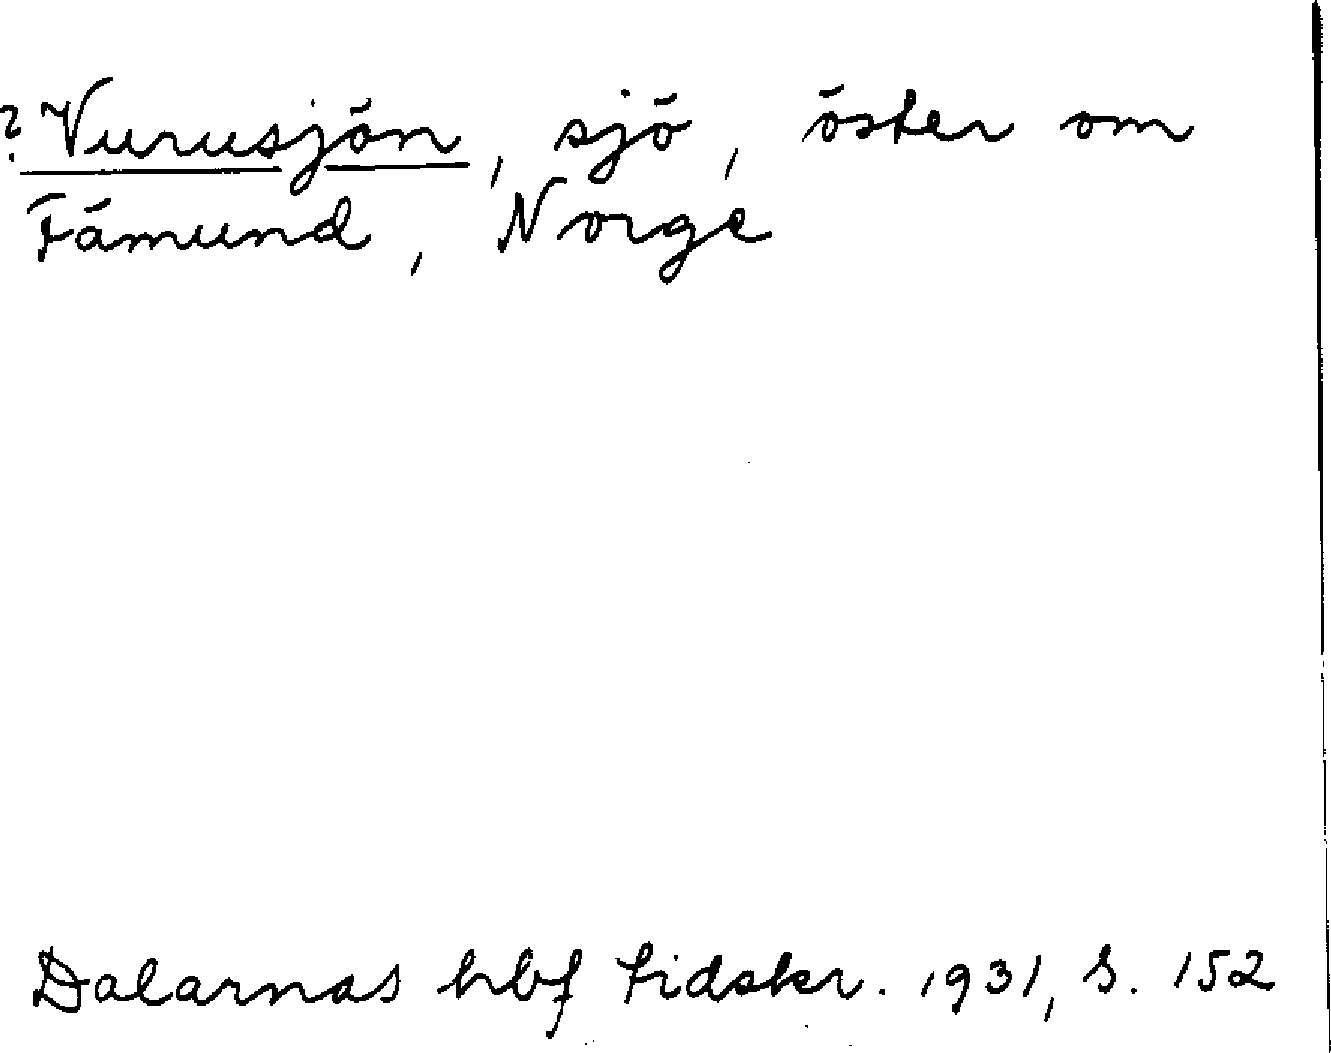 ? Vurusjön, sjö, öster om
Fämund, Norge
Dalarnas hbf tidskr. 1931, s. 152